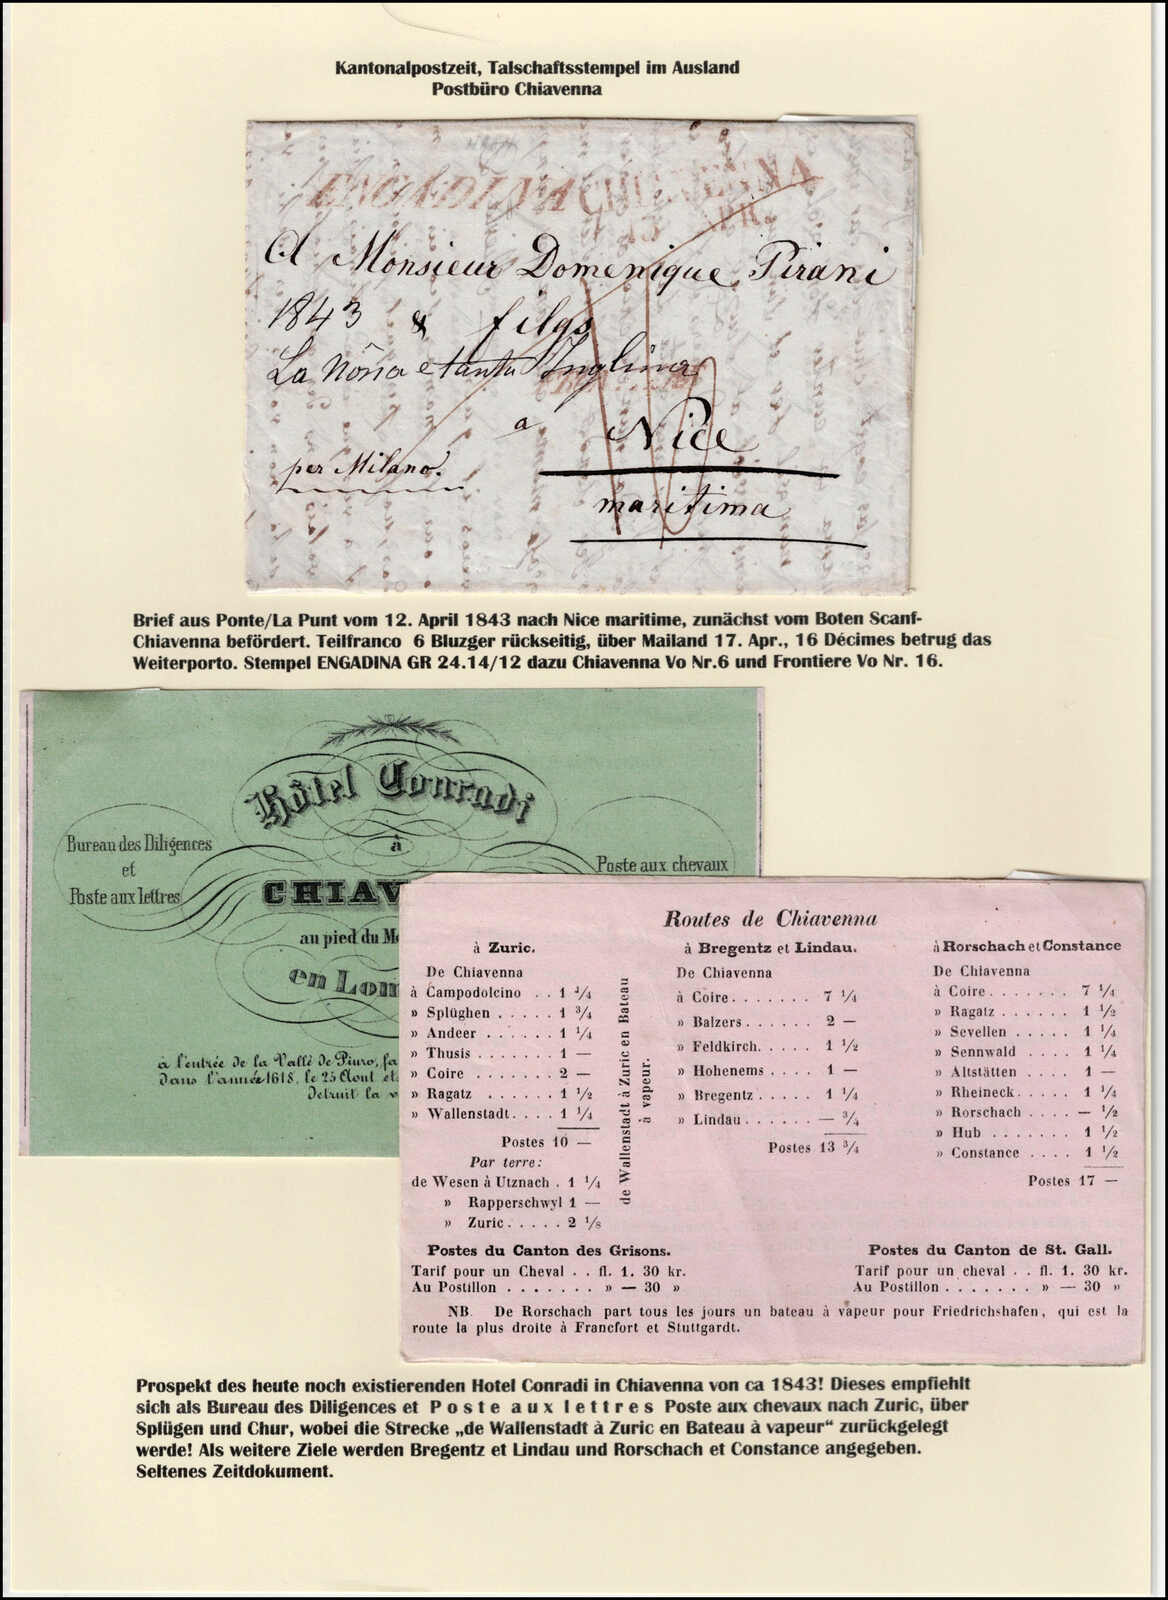 Kantonalpostzeit, Talschaftsstempel im Ausland
Postbüro Chiavenna
ENGADINA CHIAVENNA
13 APR.
A Monsieur Domenique Pirani
1843 & filgs
La Nôna e tanta Inglina
a Nice
per Milano.
maritima
Brief aus Ponte/La Punt vom 12. April 1843 nach Nice maritime, zunächst vom Boten Scanf-
Chiavenna befördert. Teilfranco 6 Bluzger rückseitig, über Mailand 17. Apr., 16 Décimes betrug das
Weiterporto. Stempel ENGADINA GR 24.14/12 dazu Chiavenna Vo Nr.6 und Frontiere Vo Nr. 16.
Hôtel Conradi
Bureau des Diligences
et
Poste aux lettres
à
Poste aux chevaux
CHIAV
au pied du M
en Lom
à l'entrée de la Vallé de Piuro, fa
dans l'année 1618, le 25 Aout et
detruit la v
Routes de Chiavenna
à Zuric.
De Chiavenna
à Campodolcino . . 1 1/4
» Splüghen . . . . . 1 3/4
» Andeer . . . . . . 1 1/4
» Thusis . . . . . . . 1 —
» Coire . . . . . . . 2 —
» Ragatz . . . . . . 1 1/2
» Wallenstadt . . . . 1 1/4
Postes 10 —
Par terre:
de Wesen à Utznach . 1 1/4
» Rapperschwyl 1 —
» Zuric . . . . . 2 1/8
de Wallenstadt à Zuric en Bateau
à vapeur.
à Bregentz et Lindau.
De Chiavenna
à Coire . . . . . . . 7 1/4
» Balzers . . . . . . 2 —
» Feldkirch. . . . . 1 1/2
» Hohenems . . . . 1 —
» Bregentz . . . . . 1 1/4
» Lindau . . . . . . — 3/4
Postes 13 3/4
à Rorschach et Constance
De Chiavenna
à Coire . . . . . . . 7 1/4
» Ragatz . . . . . . 1 1/2
» Sevellen . . . . . 1 1/4
» Sennwald . . . . 1 1/4
» Altstätten . . . . 1 —
» Rheineck. . . . . 1 1/4
» Rorschach . . . . — 1/2
» Hub . . . . . . . 1 1/2
» Constance . . . . 1 1/2
Postes 17 —
Postes du Canton des Grisons.
Tarif pour un Cheval . . fl. 1. 30 kr.
Au Postillon . . . . . . . » — 30 »
Postes du Canton de St. Gall.
Tarif pour un cheval . . fl. 1. 30 kr.
Au Postillon . . . . . . . » — 30 »
NB. De Rorschach part tous les jours un bateau à vapeur pour Friedrichshafen, qui est la
route la plus droite à Francfort et Stuttgardt.
Prospekt des heute noch existierenden Hotel Conradi in Chiavenna von ca 1843! Dieses empfiehlt
sich als Bureau des Diligences et Poste aux lettres Poste aux chevaux nach Zuric, über
Splügen und Chur, wobei die Strecke „de Wallenstadt à Zuric en Bateau à vapeur“ zurückgelegt
werde! Als weitere Ziele werden Bregentz et Lindau und Rorschach et Constance angegeben.
Seltenes Zeitdokument.